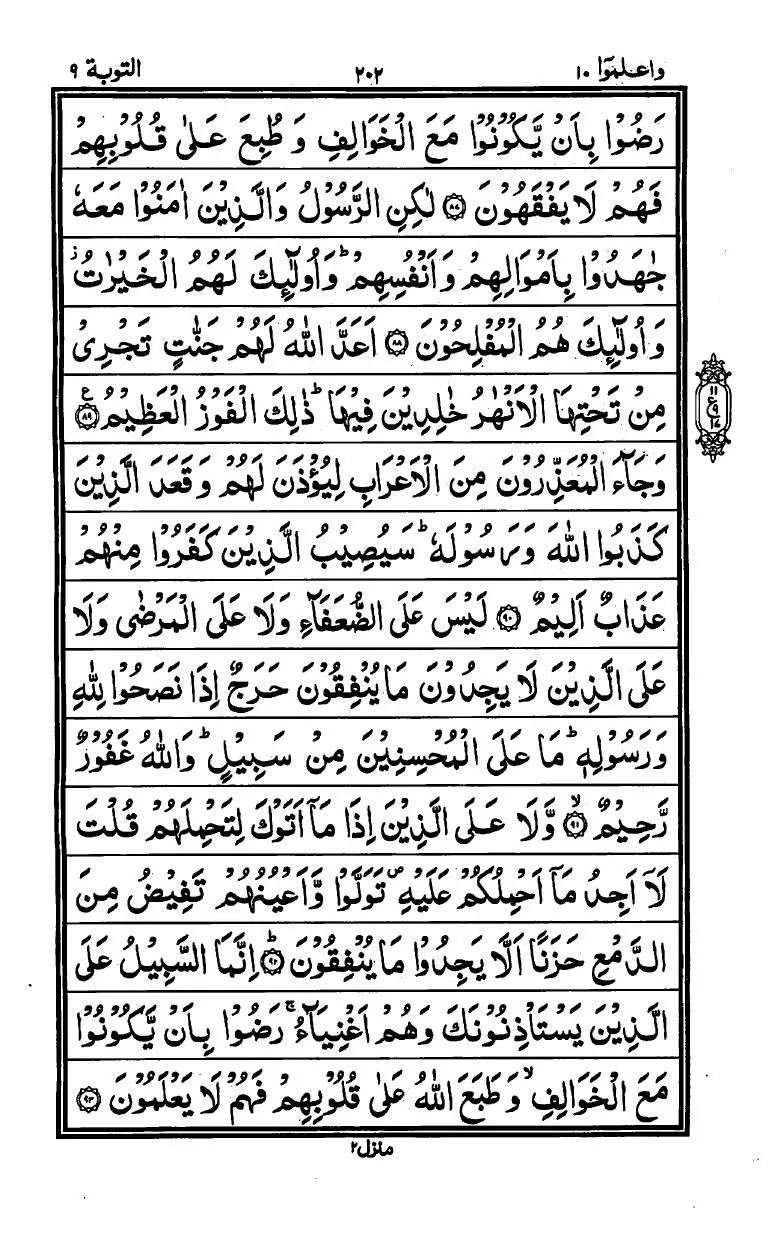 واعلموۤا ١٠ ٢٠٢ التوبة ٩
رَضُوْا بِاَنْ يَّكُوْنُوْا مَعَ الْخَوَالِفِ وَ طُبِعَ عَلٰى قُلُوْبِهِمْ
فَهُمْ لَا يَفْقَهُوْنَ ۝٨٧ لٰكِنِ الرَّسُوْلُ وَالَّذِيْنَ اٰمَنُوْا مَعَهٗ
جٰهَدُوْا بِاَمْوَالِهِمْ وَاَنْفُسِهِمْ ؕ وَاُولٰٓئِكَ لَهُمُ الْخَيْرٰتُ ز
وَاُولٰٓئِكَ هُمُ الْمُفْلِحُوْنَ ۝٨٨ اَعَدَّ اللّٰهُ لَهُمْ جَنّٰتٍ تَجْرِىْ
مِنْ تَحْتِهَا الْاَنْهٰرُ خٰلِدِيْنَ فِيْهَا ؕ ذٰلِكَ الْفَوْزُ الْعَظِيْمُ ۝٨٩ ع
١١
ع ٩
١٧
وَجَآءَ الْمُعَذِّرُوْنَ مِنَ الْاَعْرَابِ لِيُؤْذَنَ لَهُمْ وَقَعَدَ الَّذِيْنَ
كَذَبُوا اللّٰهَ وَرَسُوْلَهٗ ؕ سَيُصِيْبُ الَّذِيْنَ كَفَرُوْا مِنْهُمْ
عَذَابٌ اَلِيْمٌ ۝٩٠ لَيْسَ عَلَى الضُّعَفَآءِ وَلَا عَلَى الْمَرْضٰى وَلَا
عَلَى الَّذِيْنَ لَا يَجِدُوْنَ مَا يُنْفِقُوْنَ حَرَجٌ اِذَا نَصَحُوْا لِلّٰهِ
وَرَسُوْلِهٖ ؕ مَا عَلَى الْمُحْسِنِيْنَ مِنْ سَبِيْلٍ ؕ وَاللّٰهُ غَفُوْرٌ
رَّحِيْمٌ ۝٩١ ۙ وَّلَا عَلَى الَّذِيْنَ اِذَا مَاۤ اَتَوْكَ لِتَحْمِلَهُمْ قُلْتَ
لَاۤ اَجِدُ مَاۤ اَحْمِلُكُمْ عَلَيْهِ ۪ تَوَلَّوْا وَّاَعْيُنُهُمْ تَفِيْضُ مِنَ
الدَّمْعِ حَزَنًا اَلَّا يَجِدُوْا مَا يُنْفِقُوْنَ ۝٩٢ ؕ اِنَّمَا السَّبِيْلُ عَلَى
الَّذِيْنَ يَسْتَاْذِنُوْنَكَ وَهُمْ اَغْنِيَآءُ ۚ رَضُوْا بِاَنْ يَّكُوْنُوْا
مَعَ الْخَوَالِفِ ۙ وَطَبَعَ اللّٰهُ عَلٰى قُلُوْبِهِمْ فَهُمْ لَا يَعْلَمُوْنَ ۝٩٣
منزل٢